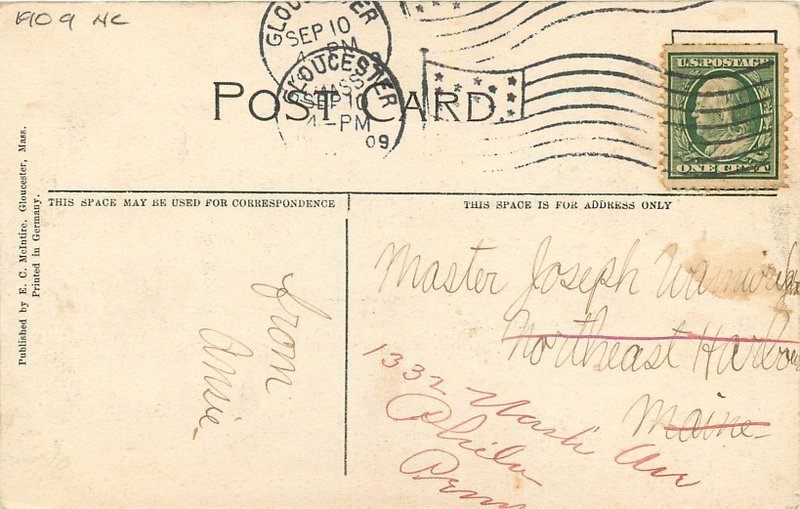 1909 NC
GLOUCESTER
SEP 10
4 - PM
GLOUCESTER
MASS.
SEP 10
4 - PM
09
POST CARD.
U.S. POSTAGE
ONE CENT
Published by E. C. McIntire, Gloucester, Mass.
Printed in Germany.
THIS SPACE MAY BE USED FOR CORRESPONDENCE
THIS SPACE IS FOR ADDRESS ONLY
from
Annie -
Master Joseph
Northeast Harbour
Maine -
1332 Wash Av
Phila
Penn